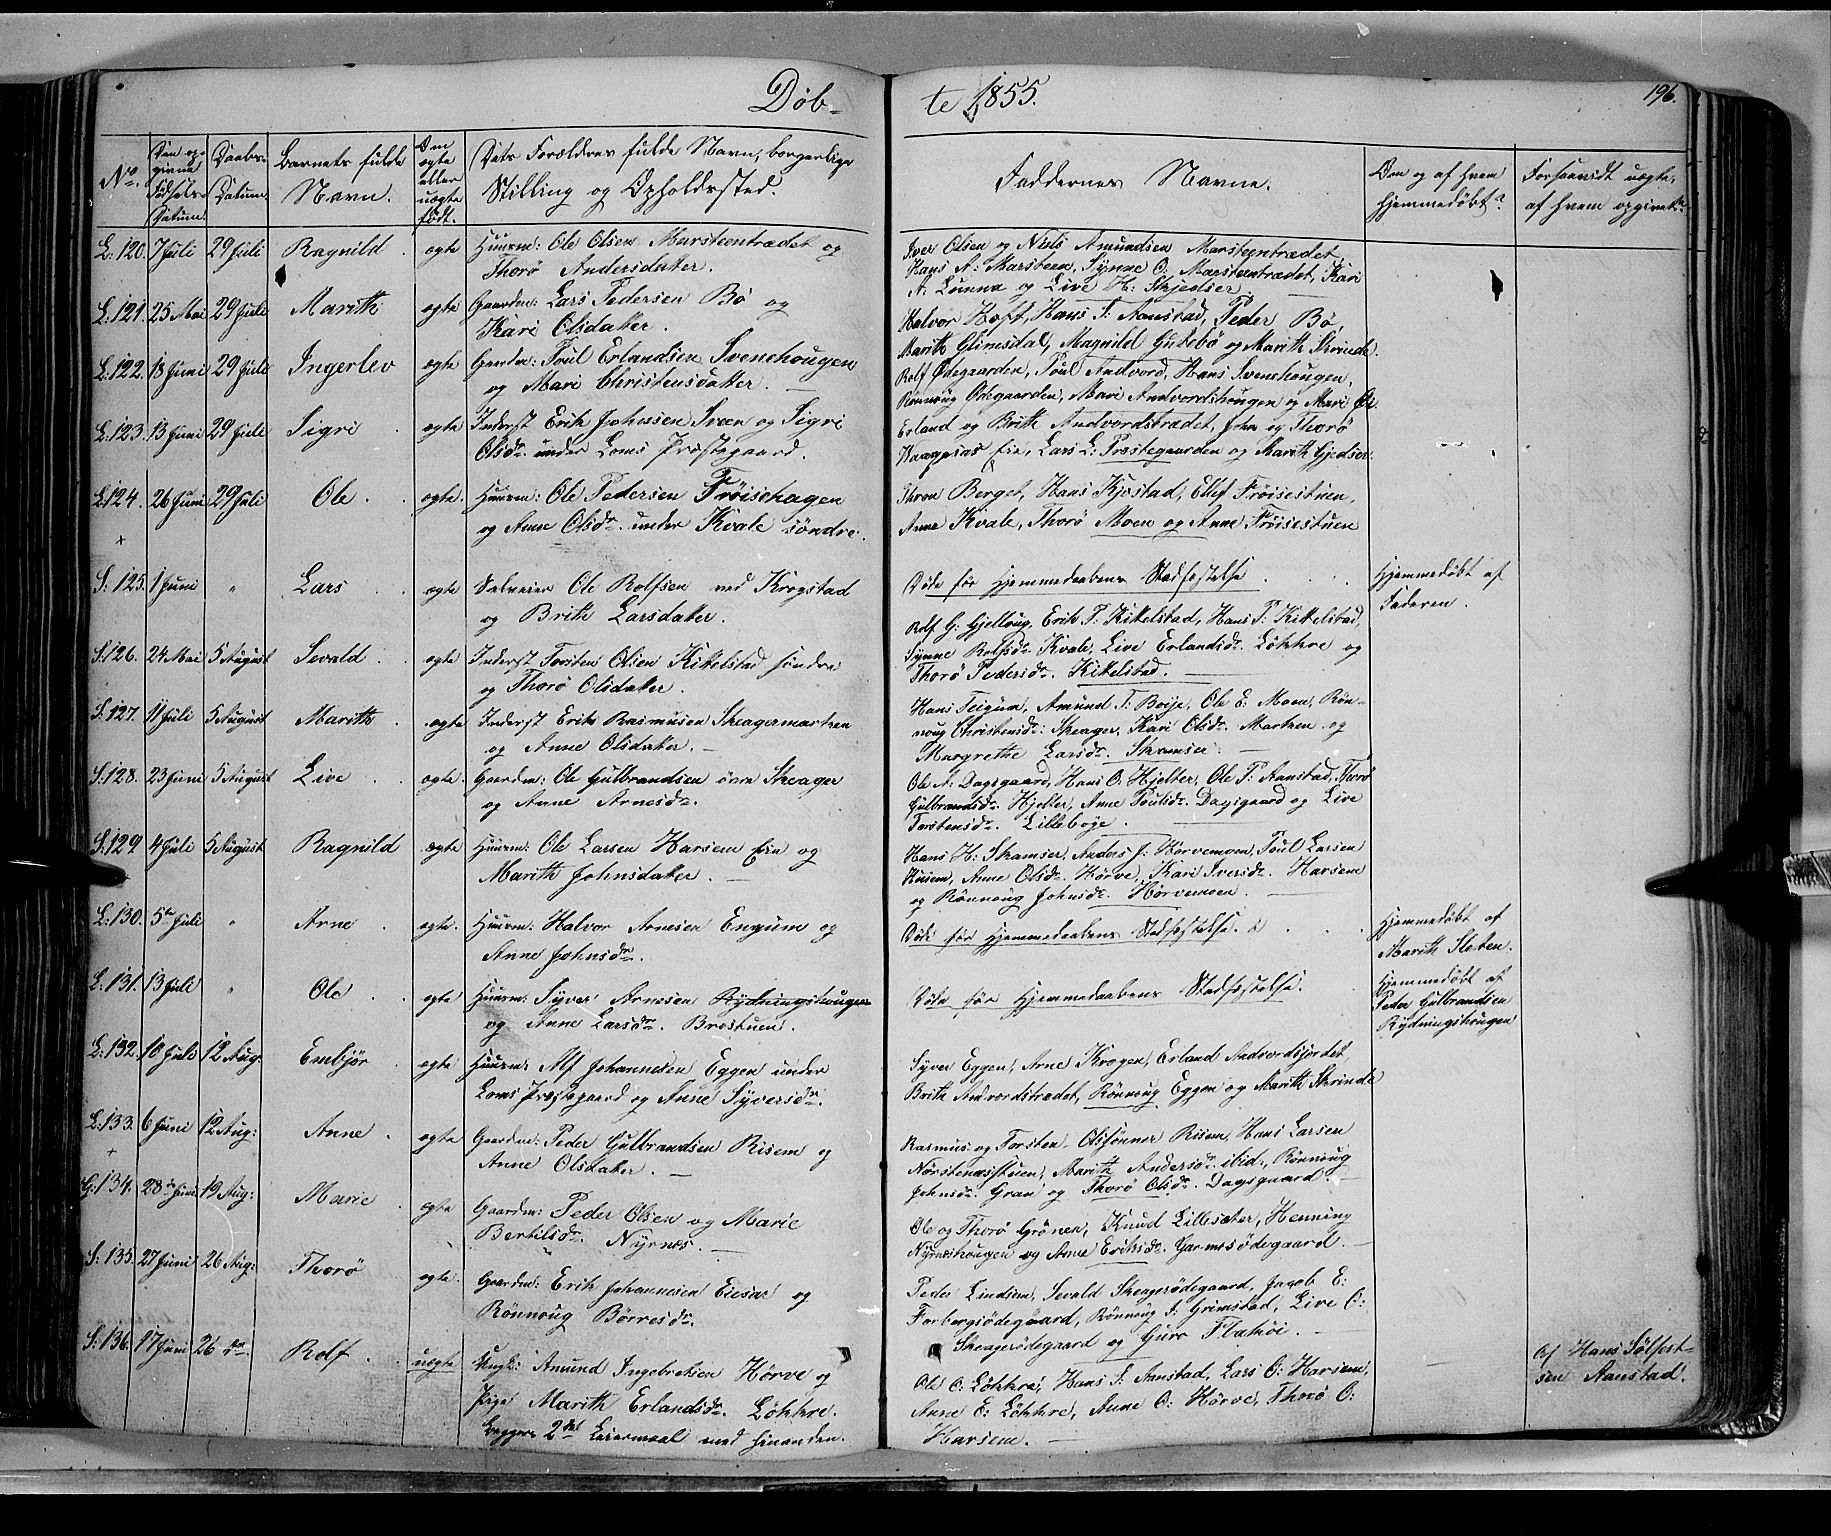 Døb-
te 1855.
196.
No.
Den op-
givne
Fødsels-
Datum.
Daabs-
Datum.
Barnets fulde
Navn.
Om
ægte
eller
uægte
født.
Dets Forældres fulde Navn, borgerlige
Stilling og Opholdssted.
Faddernes Navne.
Om og af hvem
hjemmedøbt?
Forsaavidt uægte,
af hvem opgivet?
L. 120. 7 Juli 29 Juli Ragnild ægte Huusm: Ole Olsen Marsteentrædet og
Thorø Andersdatter.
Iver Olsen og Niels Amundsen Marsteentrædet,
Hans A: Marsteen, Synne O: Marsteentrædet, Kari
A: Lunna og Live H: Skjedser.
L. 121. 25 Mai 29 Juli Marith ægte Gaardm: Lars Pedersen Bø og
Kari Olsdatter.
Halvor Hoft, Hans T: Aanstad, Peder Bø,
Marith Glimsdal, Magnild Gukebø og Marith Skrinde.
L. 122. 18 Juni 29 Juli Ingerlev ægte Gaardm: Poul Erlandsen Svenehougen
og Mari Christensdatter.
Rolf Ødegaarden, Poul Andvord, Hans Svenehougen,
Rønnoug Ødegaarden, Mari Andvordshougen og Mari
L. 123. 13 Juni 29 Juli Sigri ægte Inderst Erik Johnsen Sveen og Sigri
Olsdr. under Loms Præstegaard.
Erland og Brith Andvordstrædet, John og Thorø
Lars L: Præstegaarden og Marith Gjedser.
L. 124. 26 Juni 29 Juli Ole ægte. Huusm: Ole Pedersen Frøisehagen
og Anne Olsdr. under Kvale søndre.
Thron Berget, Hans Kjæstad, Ellef Frøisestuen,
Anne Kvale, Thorø Moen og Anne Frøisestuen
S. 125. 1 Juni " Lars ægte Selveier Ole Rolfsen ved Krogstad
og Brith Larsdatter.
Døde før Hjemmedaabens Stadfæstelse
Hjemmedøbt af
Faderen.
S. 126. 24 Mai 5 August Sevald ægte Inderst Torsten Olsen Kikkelstad søndre
og Thorø Olsdatter.
Rolf G: Gjelloug, Erik P: Kikkelstad, Hans P: Kikkelstad,
Synne Rolfsdr. Kvale, Live Erlandsdr. Løkkre og
Thorø Pedersdr. Kikkelstad.
S. 127. 11 Juli 5 August Marith ægte Inderst Erik Rasmusen Skeagermarken
og Anne Olsdatter.
Hans Teigum, Amund T: Boije, Ole E: Moen, Røn-
noug Christensdr: Skeager, Kari Olsdr. Marken og
Margrethe Larsdr. Skamser.
S. 128. 23 Juni 5 August Live ægte. Gaardm: Ole Gulbrandsen øvre Skeager
og Anne Arnesdr.
Ole A: Dagsgaard, Hans O: Hjelter, Ole P: Aanstad, Thorø
Gulbrandsdr. Hjelter, Anne Poulsdr. Dagsgaard og Live
Torstensdr. Lilleboje.
S. 129 4 Juli 5 August Ragnild ægte Huusm: Ole Larsen Harsem Eie og
Marith Johnsdatter.
Hans H: Skamser, Anders J: Hørvemoen, Poul Larsen
Risem, Anne Olsdr. Hørve, Kari Iversdr. Harsem
og Rønnoug Johnsdr. Hørvemoen.
L. 130. 5te Juli " Arne ægte. Huusm: Halvor Arnesen Engum og
Anne Johnsdr.
Døde før Hjemmedaabens Stadfæstelse.
Hjemmedøbt af
Marith Sleten.
L. 131. 13 Juli " Ole ægte Huusm: Syver Arnesen Rydningshougen
og Anne Larsdr. Brostuen.
Døde før Hjemmedaabens Stadfæstelse.
Hjemmedøbt af
Peder Gulbrandsen
Rydningshougen
L. 132. 10 Juli 12 Aug: Embjør ægte Huusm: Alf Johannesen Eggen under
Loms Præstegaard og Anne Syversdr.
Syver Eggen, Arne Krogen, Erland Andvordsjordet,
Brith Andvordstrædet, Rønnoug Eggen og Marith Skrinde
L. 133. 6 Juni 12 Aug: Anne ægte Gaardm: Peder Gulbrandsen Risem og
Anne Olsdatter.
Rasmus og Torsten Olssønner Risem, Hans Larsen
Nørstenæsstuen, Marith Andersdr. ibid., Rønnoug
Johnsdr. Gran og Thorø Olsdr. Dagsgaard.
G. 134. 28de Juni 19 Aug: Marie ægte Gaardm: Peder Olsen og Marie
Bertilsdr. Nyrnæs.
Ole og Thorø Grønen, Knud Lillesæter, Henning
Nyrnæshougen og Anne Eriksdr. Garmosødegaard.
S. 135. 27 Juni 26 Aug: Thorø ægte. Gaardm: Erik Johannesen Eiesar og
Rønnoug Børresdr.
Peder Lindsem, Sevald Skeagerødegaard, Jacob E:
Forbergsødegaard, Rønnoug S: Grimstad, Live O:
Skeagerødegaard og Guro Flathøi.
S. 136. 17 Juni 26 do. Rolf uægte Ungk: Amund Ingebretsen Hørve og
Pige Marith Erlandsdr. Løkkre.
Begges 2det Leiermaal med hinanden.
Ole O: Løkkre, Hans S: Aanstad, Lars O: Harsem,
Anne E: Løkkre, Anne O: Hørve, Thorø O:
Harsem.
Af Hans Sølfest-
sen Aanstad.